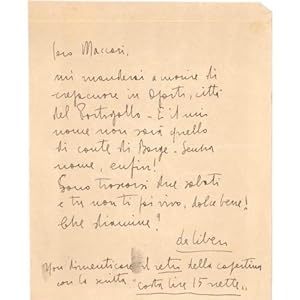 Caro Maccari,
mi manderai a morire di
crepacuore in Oporto, città
del Portogallo - E il mio
nome non sarà quello
di conte di Barge - Senza
nome, enfin!
Sono trascorsi due sabati
e tu non ti fai vivo, dolce bene!
Che diamine!
de Libero
Non dimenticare il retro della copertina
con la scritta "costa lire 15 nette"